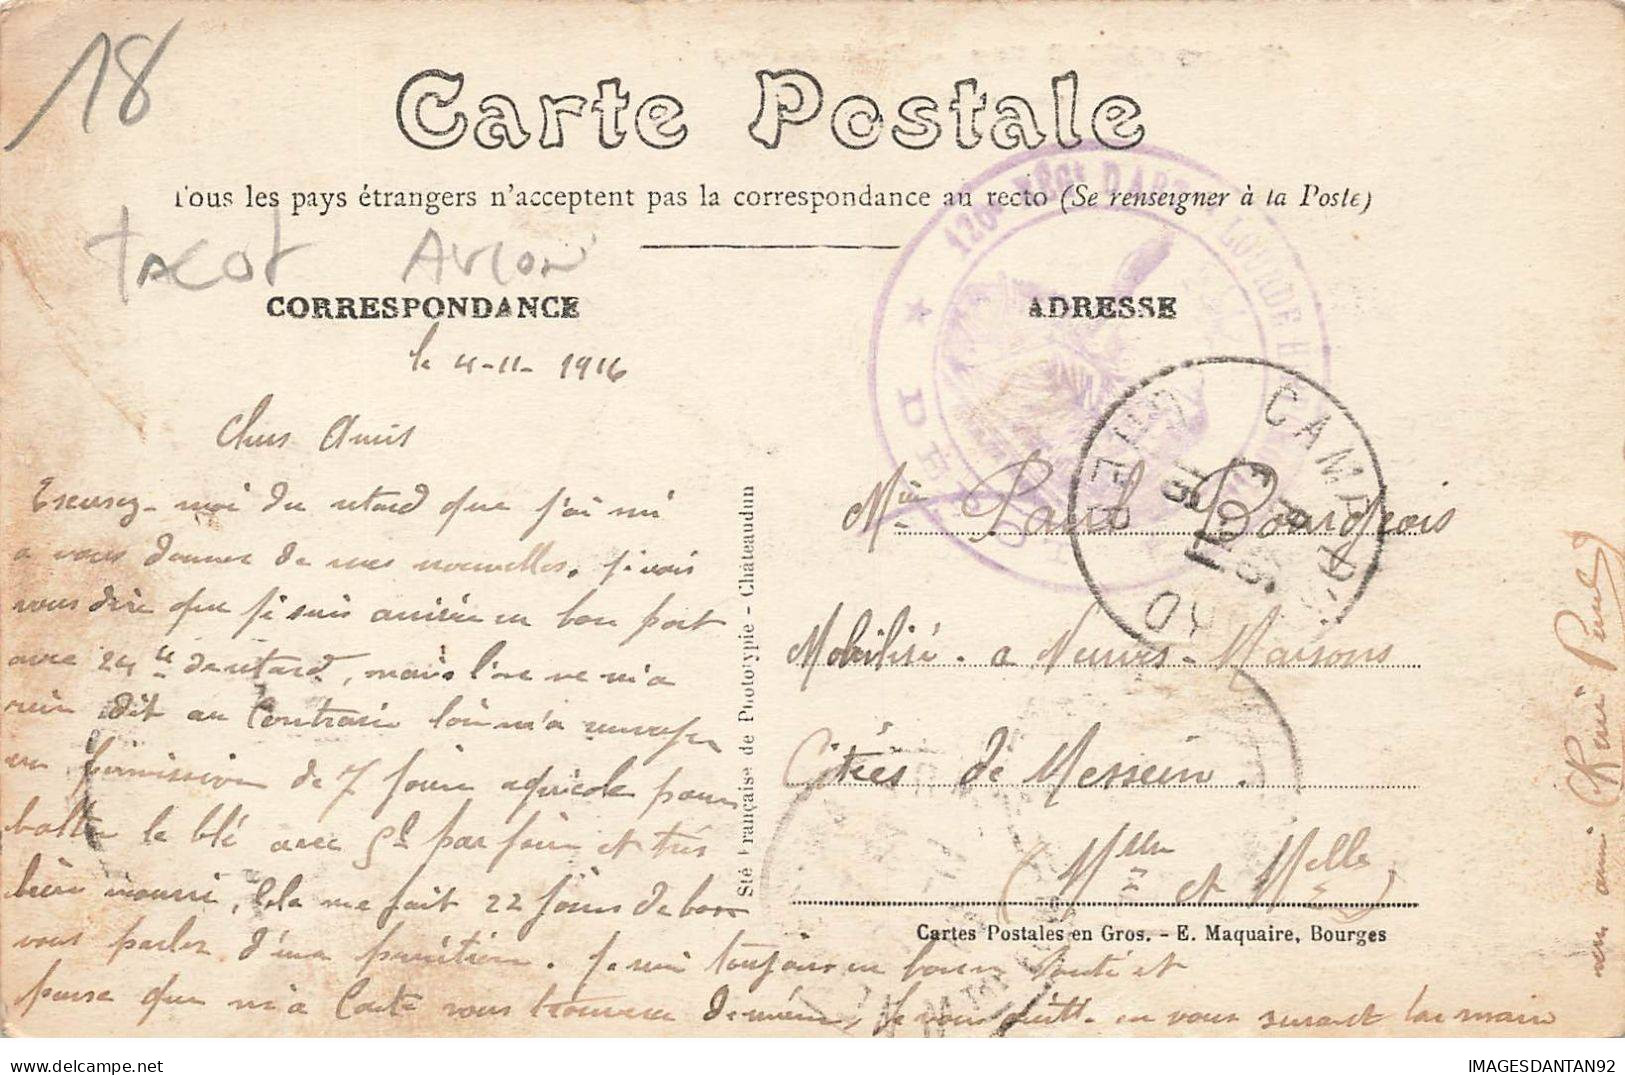 18
Carte Postale
Tous les pays étrangers n'acceptent pas la correspondance au recto (Se renseigner à la Poste)
TACOT AVION
CORRESPONDANCE
ADRESSE
120e Régt D'ARTie LOURDE
★ DÉPOT
CAMP D'AVORD
CHER
le 4-11-1916
Chers Amis
Excusez-moi du retard que j'ai mi
a vous donner de mes nouvelles. je vais
vous dire que je suis arrivée en bon port
avec 24 h de retard, mais l'on ne m'a
rien dit au Contraire l'on m'a renvoyer
en permission de 7 jours agricole pour
battre le blé avec 5f par jour et très
bien nourri, Cela me fait 22 jours de bon
vous parler d'une punition. je suis toujours en bonne santé et
pense que m'a Carte vous trouvera de même, je vous quitte en vous serrant la main
Mr Paul Bourgeois
Mobilisé a Neuves-Maisons
Citées de Messein.
( Mme et Melle )
Sté Française de Phototypie - Châteaudun
Cartes Postales en Gros. - E. Maquaire, Bourges
ami René
IMAGESDANTAN92